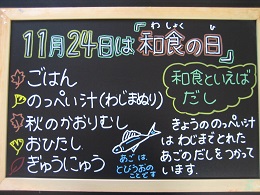 11月24日は『和食の日』
わしょく ひ
ごはん
のっぺい汁(わじまぬり)
秋のかおりむし
おひたし
ぎゅうにゅう
和食といえば
だし
きょうののっぺい汁
はわじまでとれた
あごのだしをつかって
います。
あごは
とびうおの
ことです